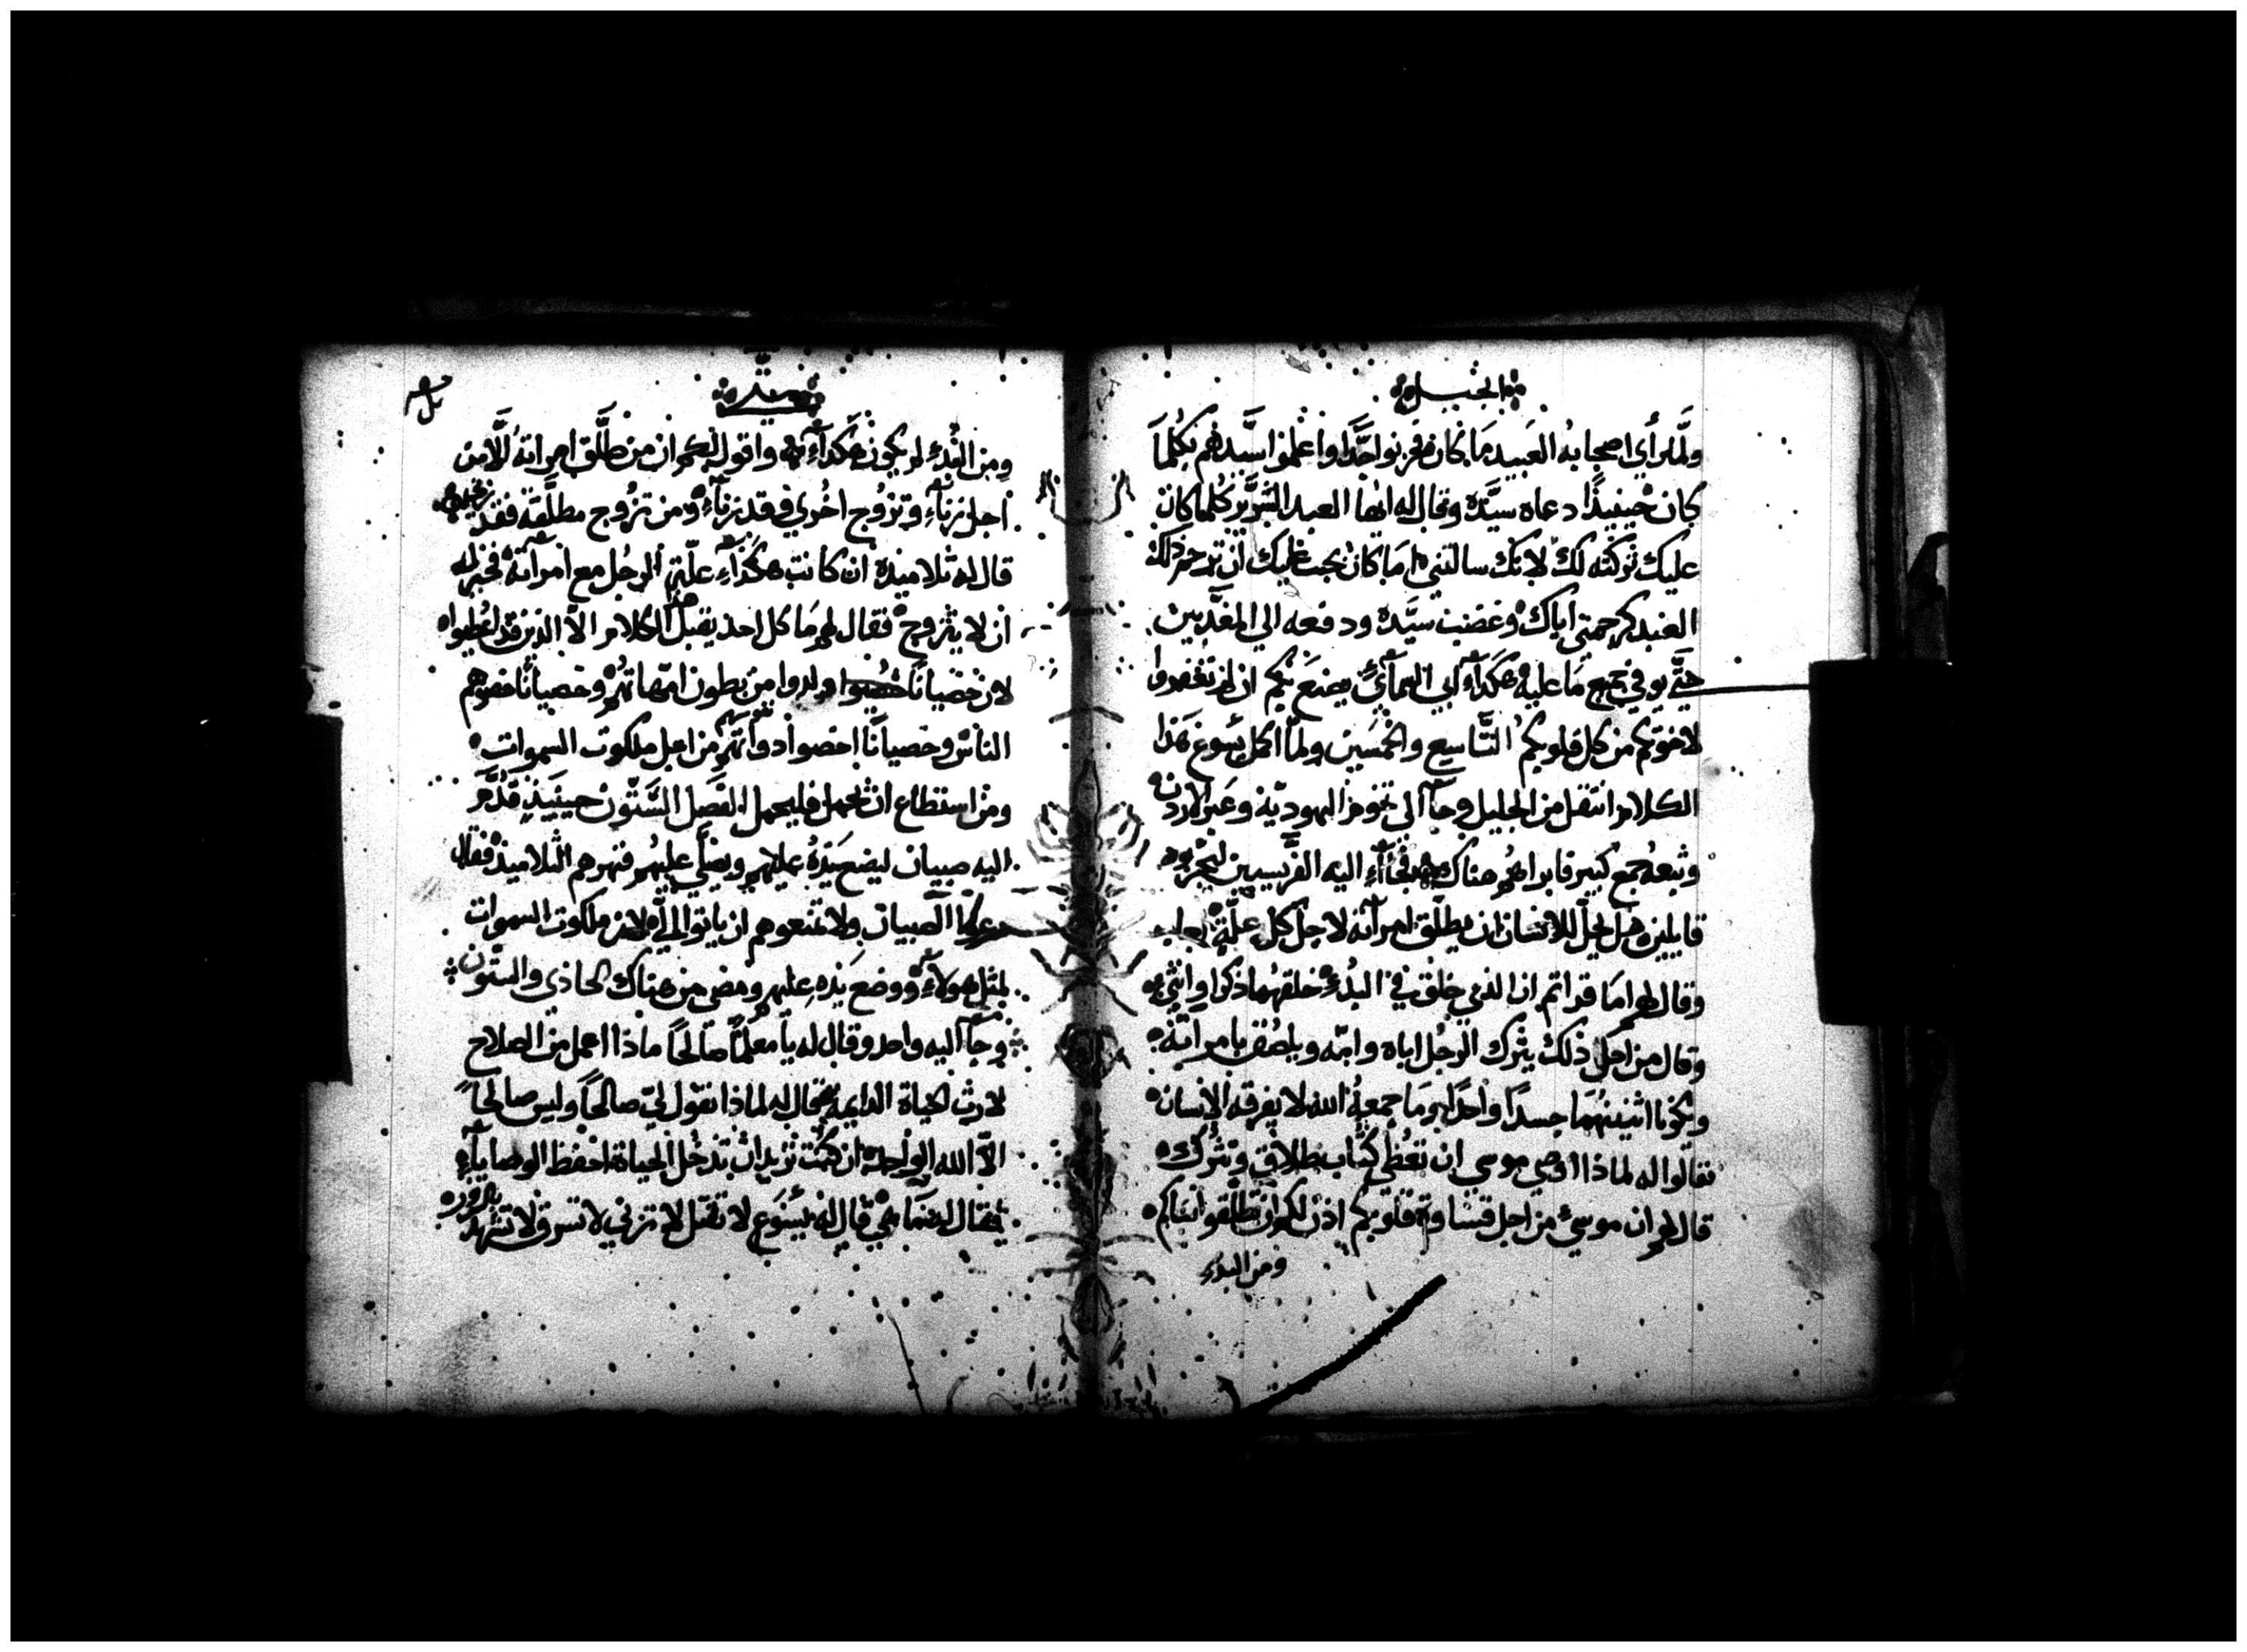 انجيل
ولما راي اصحابه العبيد ما كان فحزنوا جدا واعلموا سيدهم بكلما
كان حينيذا دعاه سيده وقال له ايها العبد الشرير كلما كان
عليك تركته لك لانك سالتني اما كان يجب عليك ان ترحم ذلك
العبد كرحمتي اياك وغضب سيده ودفعه الي المعذبين
حتي يوفي جميع ما عليه هكذآء ابي السمآي يصنع بكم ان لم تغفروا
لاخوتكم من كل قلوبكم التاسع والخمسين ولما اكمل يسوع هذا
الكلام انتقل من الجليل وجآ الي تخوم اليهودية وعبر الاردن
وتبعه جمع كبير فابراهم هناك فجآء اليه الفريسيين ليجربوه
قايلين هل يحل للانسان ان يطلق امرآته لاجل كل علة
وقال لهم اما قراتم ان الذي خلق في البدء خلقهما ذكرا وانثي
وقال من اجل ذلك يترك الرجل اباه وامه ويلصق بامراته
ويكونا اثنينهما جسدا واحدا وما جمعه الله لا يفرقه الانسان
فقالوا له لماذا اوصي موسي ان تعطي كتاب طلاق وتترك
قال لهم ان موسي من اجل قساوة قلوبكم اذن لكم ان تطلقوا نساكم
ومن البدء
متي
ومن البدء لم يكون هكذآء واقول لكم ان من طلق امراته الا من
اجل زنآء وتزوج اخري فقد زنآء ومن تزوج مطلقة فقد
قال له تلاميذه ان كانت هكذآء علة الرجل مع امرآته فخير له
ان لا يتزوج فقال لهم ما كل احد يقبل هذا الكلام الا الذين قد اعطيوا
لان خصيانا ولدوا من بطون امهاتهم وخصيانا خصوهم
الناس وخصيانا اخصوا ذواتهم من اجل ملكوت السموات
ومن استطاع ان يحمل فليحمل الفصل الستون حينيذ قدم
اليه صبيان ليضع يده عليهم ويصلي عليهم فنهرهم التلاميذ فقال
دعوا الصبيان ولا تمنعوهم ان ياتوا الي لان ملكوت السموات
لمثل هولآء ووضع يده عليهم ومضي من هناك الحادي والستون
وجآ اليه واحد وقال له يا معلما صالحا ماذا اعمل من الصلاح
لارث الحياة الدايمة فقال له لماذا تقول لي صالحا وليس صالحا
الا الله الواحد ان كنت تريد ان تدخل الحياة احفظ الوصايآء
فقال له وما هي قال له يسوع لا تقتل لا تزني لا تسرق لا تشهد بالزور